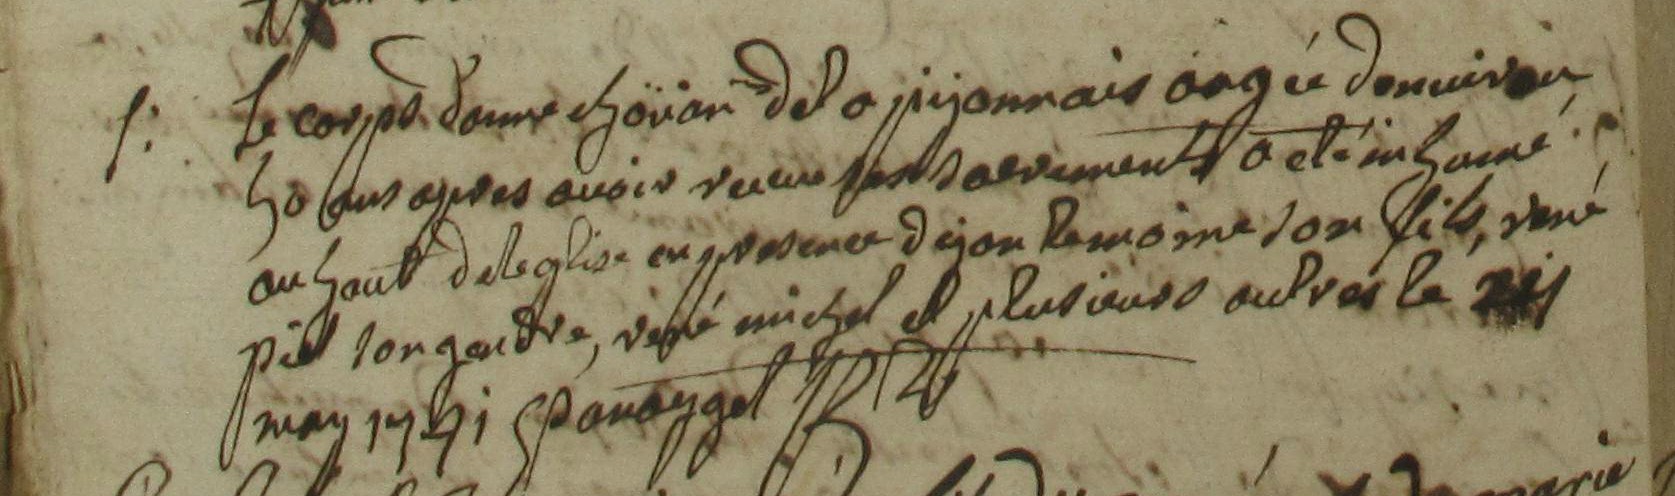 S: le corps d'anne choüan de la pijonnais aagée d'enuiron
ans apres auoir receu ses sacrements a eté inhumé
au haut de leglise en presence dyon lemoine son fils, rené
piel son gendre, rené michel et plusieurs autres le
may 1741
marie